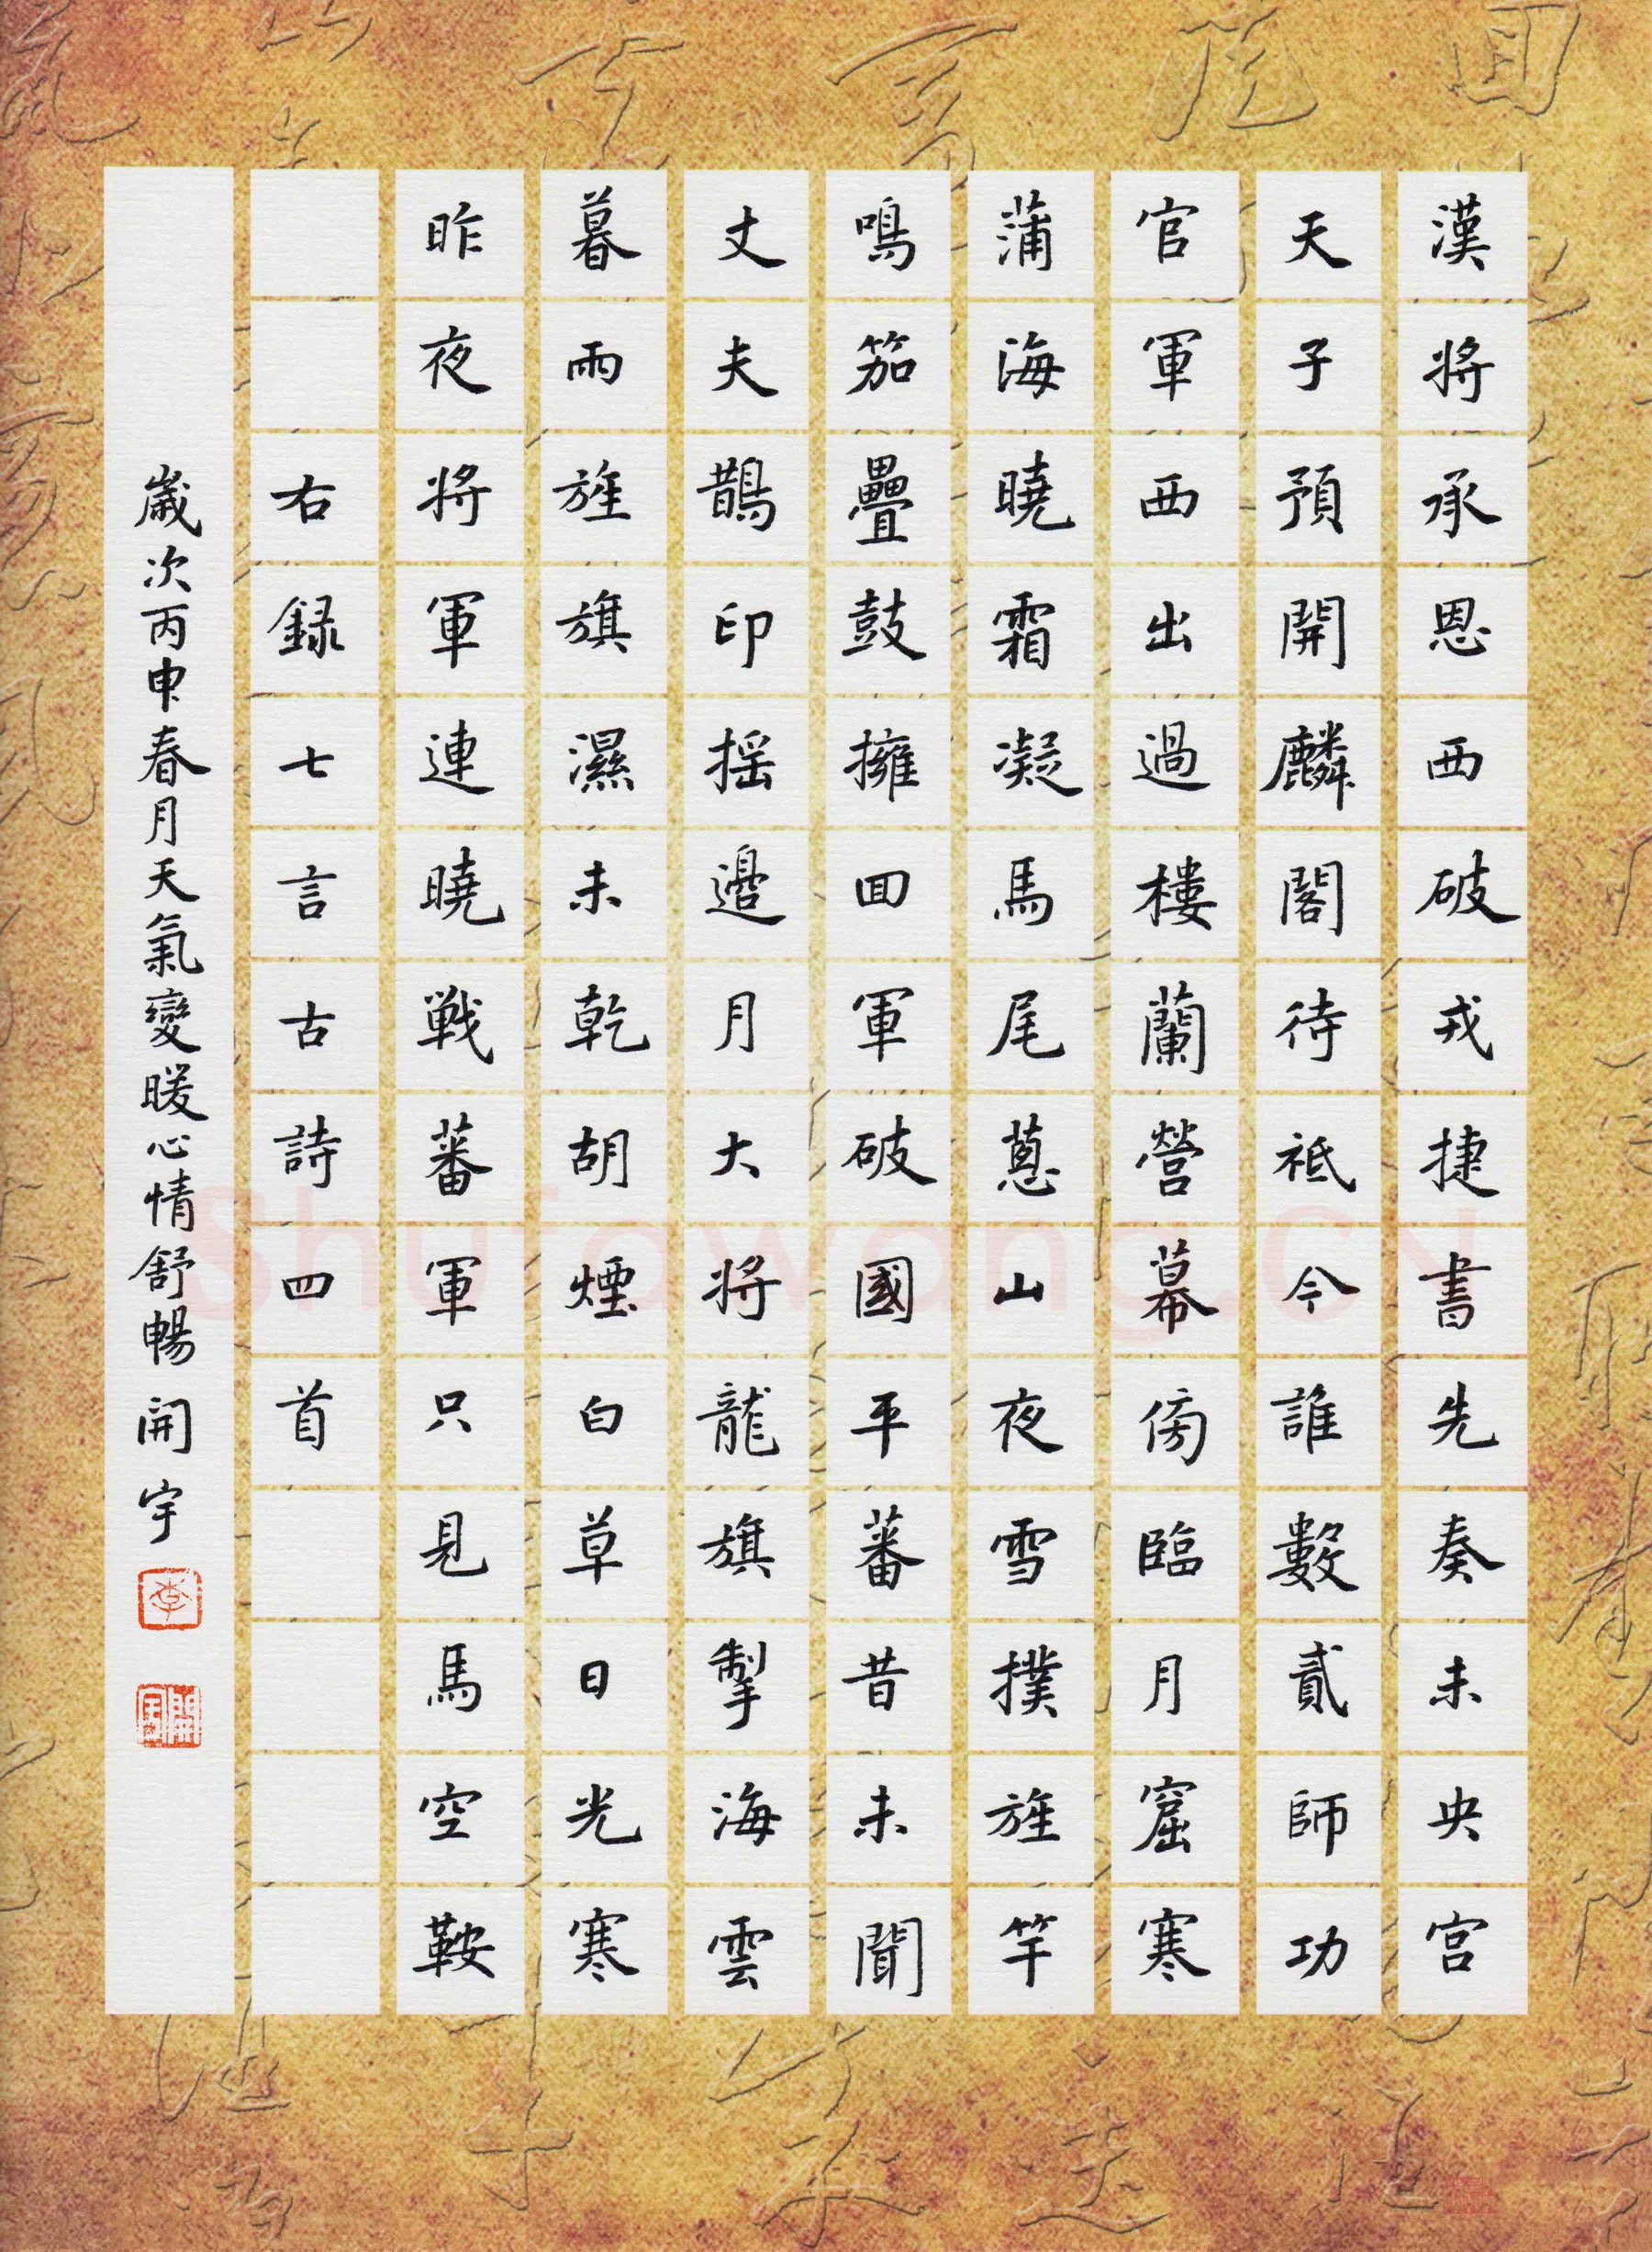 漢將承恩西破戎捷書先奏未央宮
天子預開麟閣待祗今誰數貳師功
官軍西出過樓蘭營幕傍臨月窟寒
蒲海曉霜凝馬尾蔥山夜雪撲旌竿
鳴笳疊鼓擁回軍破國平蕃昔未聞
丈夫鵲印搖邊月大將龍旗掣海雲
暮雨旌旗濕未乾胡煙白草日光寒
昨夜將軍連曉戰蕃軍只見馬空鞍
右録七言古詩四首
歲次丙申春月天氣變暖心情舒暢開宇
李
開宇
Shufawang.CN